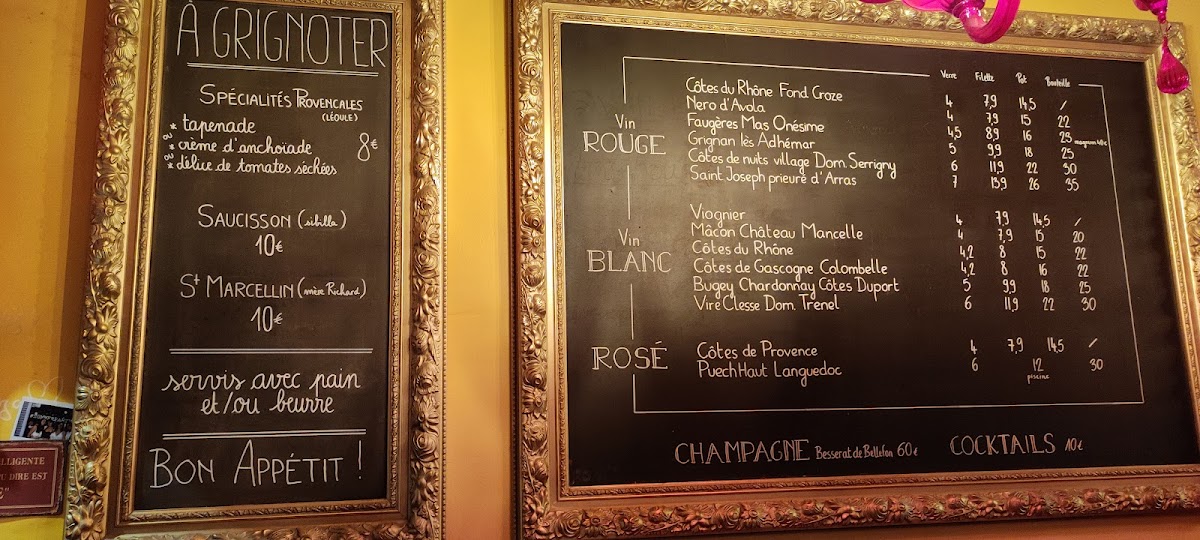 À GRIGNOTER
SPÉCIALITÉS PROVENCALES
(LÉOULÉ)
* tapenade
ou
* crème d'anchoiade 8€
ou
* délice de tomates séchées
SAUCISSON (sibilla)
10€
ST MARCELLIN (mère Richard)
10€
servis avec pain
et/ou beurre
BON APPÉTIT !
LLIGENTE
DIRE EST
E"
Verre Fillette Pot Bouteille
Vin
ROUGE
Côtes du Rhône Fond Croze 4 7,9 14,5 /
Nero d'Avola 4 7,9 15 22
Faugères Mas Onésime 4,5 8,9 16 25 magnum 48€
Grignan lès Adhémar 5 9,9 18 25
Côtes de nuits village Dom. Serrigny 6 11,9 22 30
Saint Joseph prieuré d'Arras 7 13,9 26 35
Vin
BLANC
Viognier 4 7,9 14,5 /
Mâcon Château Mancelle 4 7,9 15 20
Côtes du Rhône 4,2 8 15 22
Côtes de Gascogne Colombelle 4,2 8 16 22
Bugey Chardonnay Côtes Duport 5 9,9 18 25
Viré Clessé Dom. Trenel 6 11,9 22 30
ROSÉ
Côtes de Provence 4 7,9 14,5 /
Puech Haut Languedoc 6 12 30
piscine
CHAMPAGNE Besserat de Bellefon 60€ COCKTAILS 10€